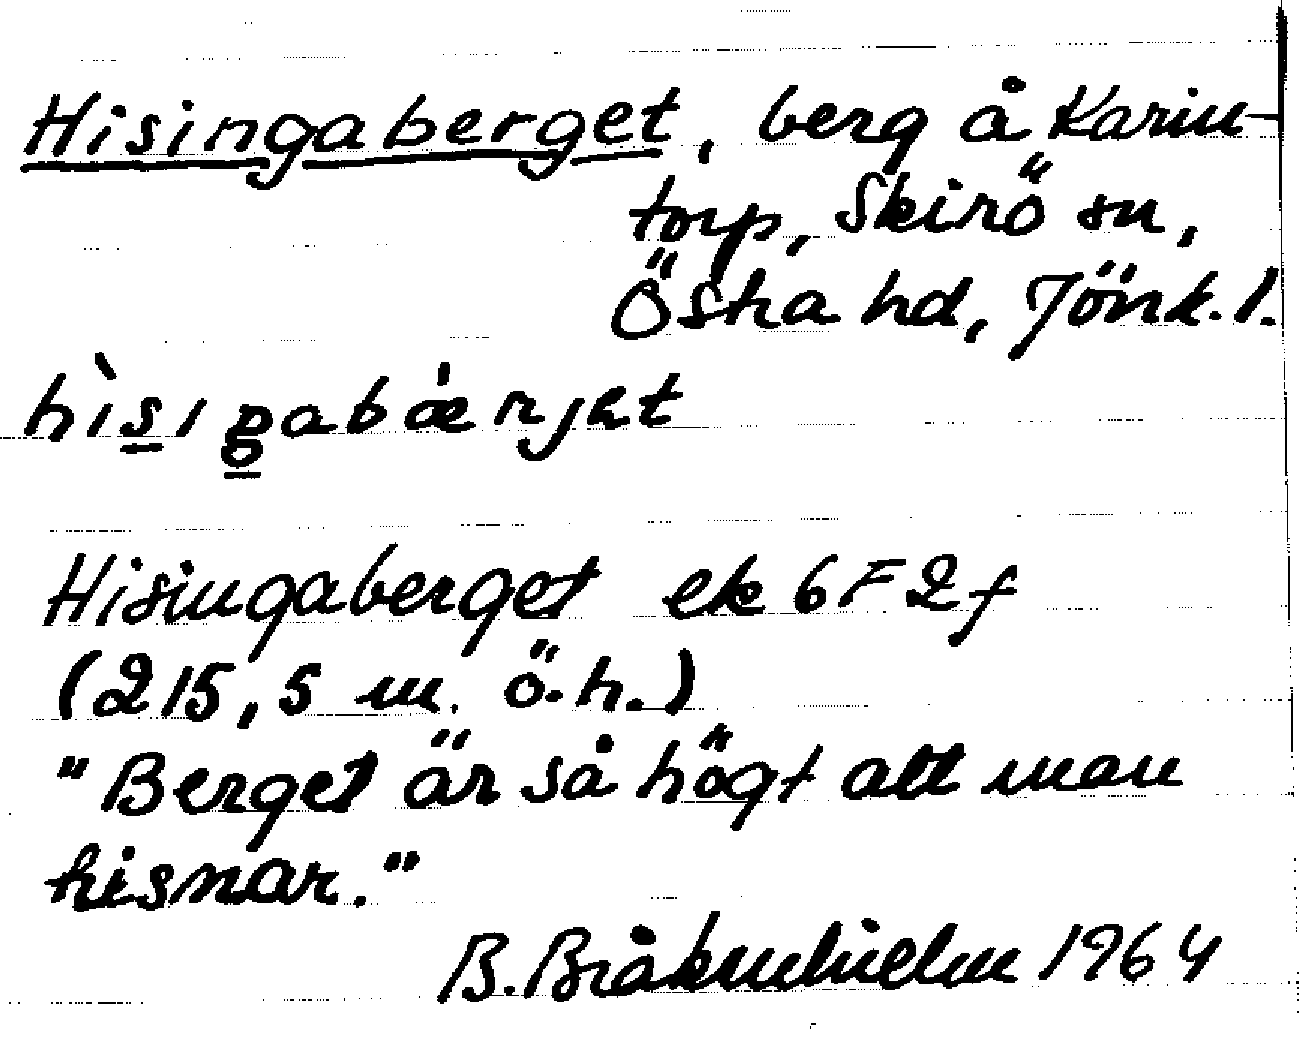 Hisingaberget, berg å Karin-
torp, Skirö sn,
Östra hd, Jönk. l.
hìsıgabǽrjet
Hisingaberget ek 6F2f
(215,5 m. ö.h.)
"Berget är så högt att man
hisnar."
B. Bråkenhielm 1964